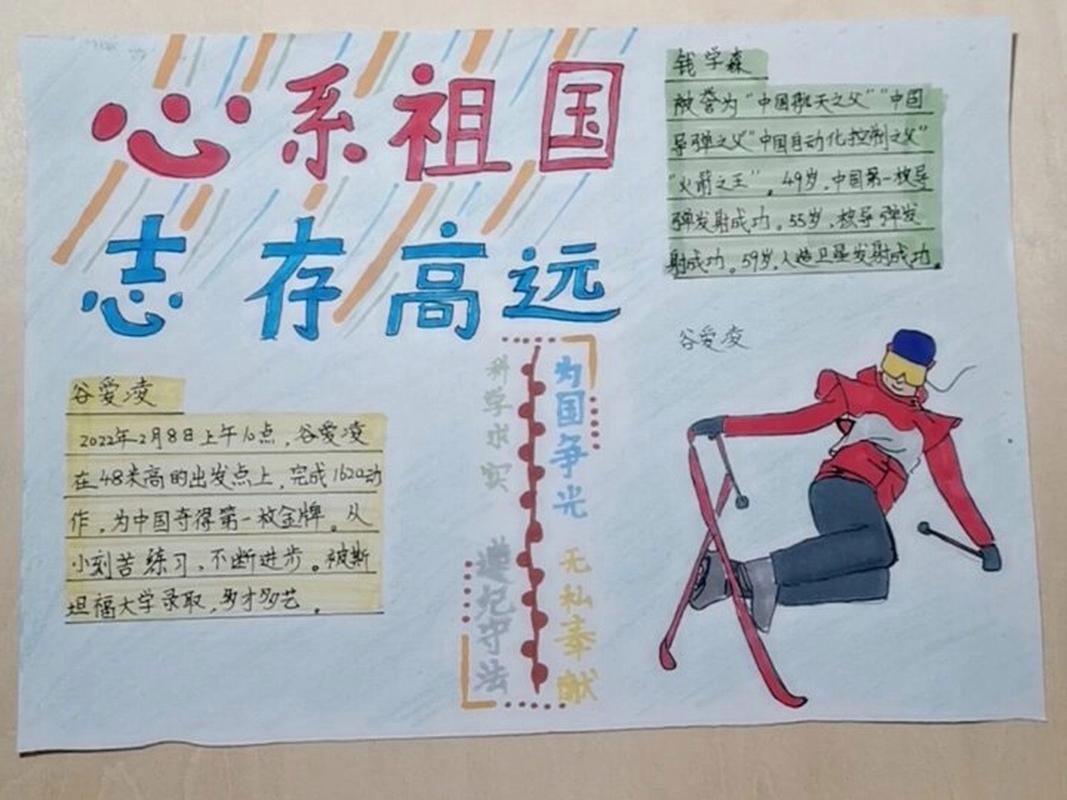 心系祖国
志存高远
钱学森
被誉为“中国航天之父”“中国
导弹之父”“中国自动化控制之父”
“火箭之王”。49岁,中国第一枚导
弹发射成功。55岁,核导弹发
射成功。59岁,人造卫星发射成功。
谷爱凌
谷爱凌
2022年2月8日上午10点,谷爱凌
在48米高的出发点上,完成1620动
作,为中国夺得第一枚金牌。从
小刻苦练习,不断进步。被斯
坦福大学录取,多才多艺。
科学求实
为国争光
遵纪守法
无私奉献